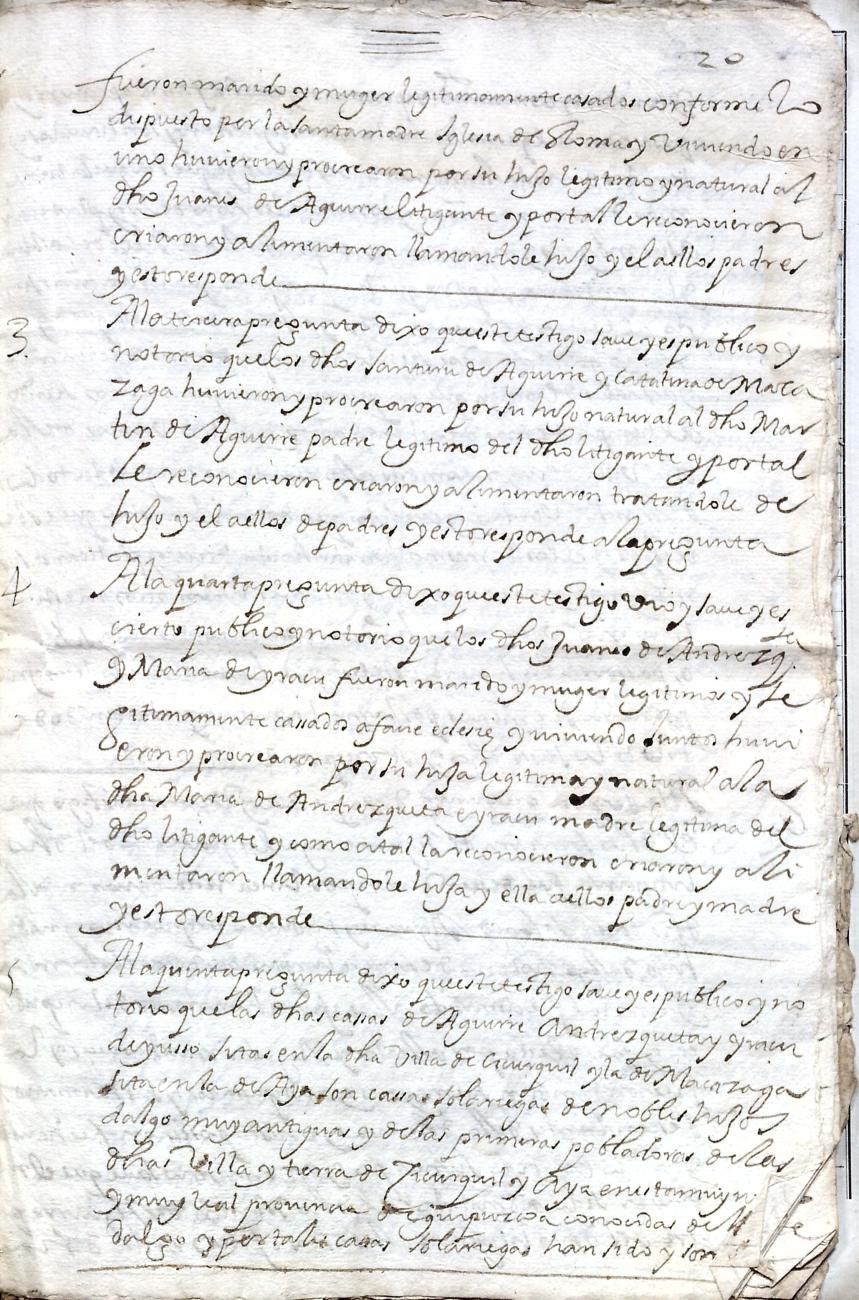 20
fueron marido y muger legitimamente casados conforme lo
dispuesto por la santa madre Iglesia de Roma y viviendo en
uno huvieron y procrearon por su hijo legitimo y natural al
dho Juanes de Aguirre litigante y por tal le reconocieron
criaron y alimentaron llamandole hijo y el a ellos padres
y esto responde
3 A la tercera pregunta dixo que este testigo save y es publico y
notorio que los dhos Santuru de Aguirre y Catalina de Maca
zaga huvieron y procrearon por su hijo natural al dho Mar
tin de Aguirre padre legitimo del dho litigante y por tal
le reconocieron criaron y alimentaron tratandole de
hijo y el a ellos de padres y esto responde a la pregunta
4 A la quarta pregunta dixo que este testigo vio y save y es
cierto publico y notorio que los dhos Juanes de Andrezqta
y Maria de yracu fueron marido y muger legitimos y le
gitimamente cassados a facie eclesię y viviendo juntos huvi
eron y procrearon por su hija legitima y natural a la
dha Maria de Andrezqueta e yracu madre legitima del
dho litigante y como a tal la reconocieron criaron y ali
mentaron llamandole hija y ella a ellos padre y madre
y esto responde
5 A la quinta pregunta dixo que este testigo save y es publico y no
torio que las dhas cassas de Aguirre Andrezqueta y yracu
de yusso sitas en la dha Villa de Cicurquil y la de Macazaga
sita en la de Aya son cassas solariegas de nobles hijos
dalgo muy antiguas y de las primeras pobladoras de las
dhas Villa y tierra de Zicurquil y Aya en esta muy n
y muy leal provincia de guipuzcoa conocidas de
dalgo y por tales casas solariegas han sido y son